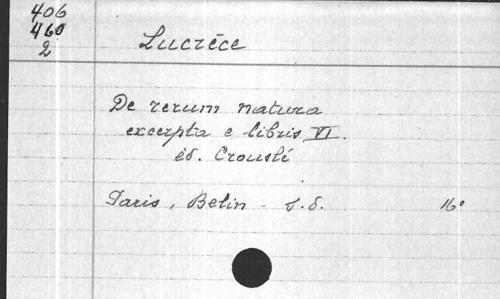 406
460
2
Lucrèce
De rerum natura
excerpta e libris VI.
éd. Crouslé
Paris, Belin - s.d. 16°